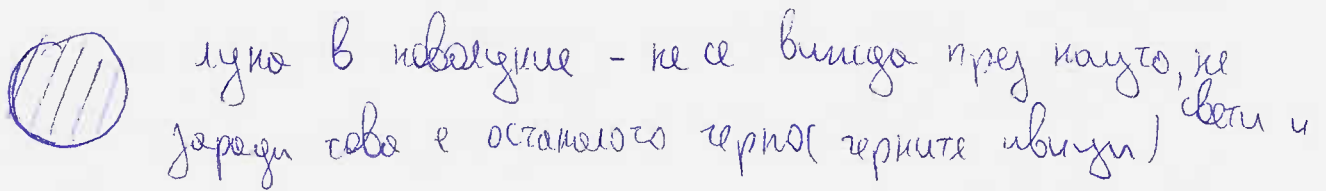 луна в новолуние - не се вижда през нощта, не свети и
заради това е останалото черно( черните ивици)